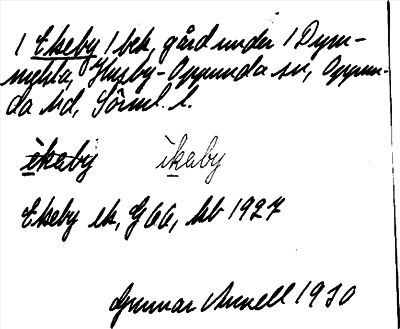 1 Ekeby 1 bek, gård under 1 Dym-
nehla, Husby-Oppunda sn, Oppun-
da hd, Sörml. l.
ikaby ìkaby
Ekeby ek, G66, kb 1927
Gunnar Annell 1930